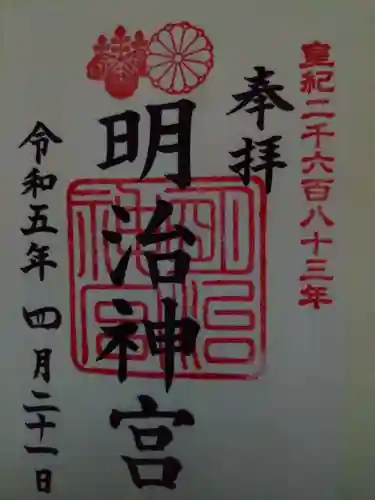 皇紀二千六百八十三年
奉拝
明治神宮
明治神宮
令和五年四月二十一日